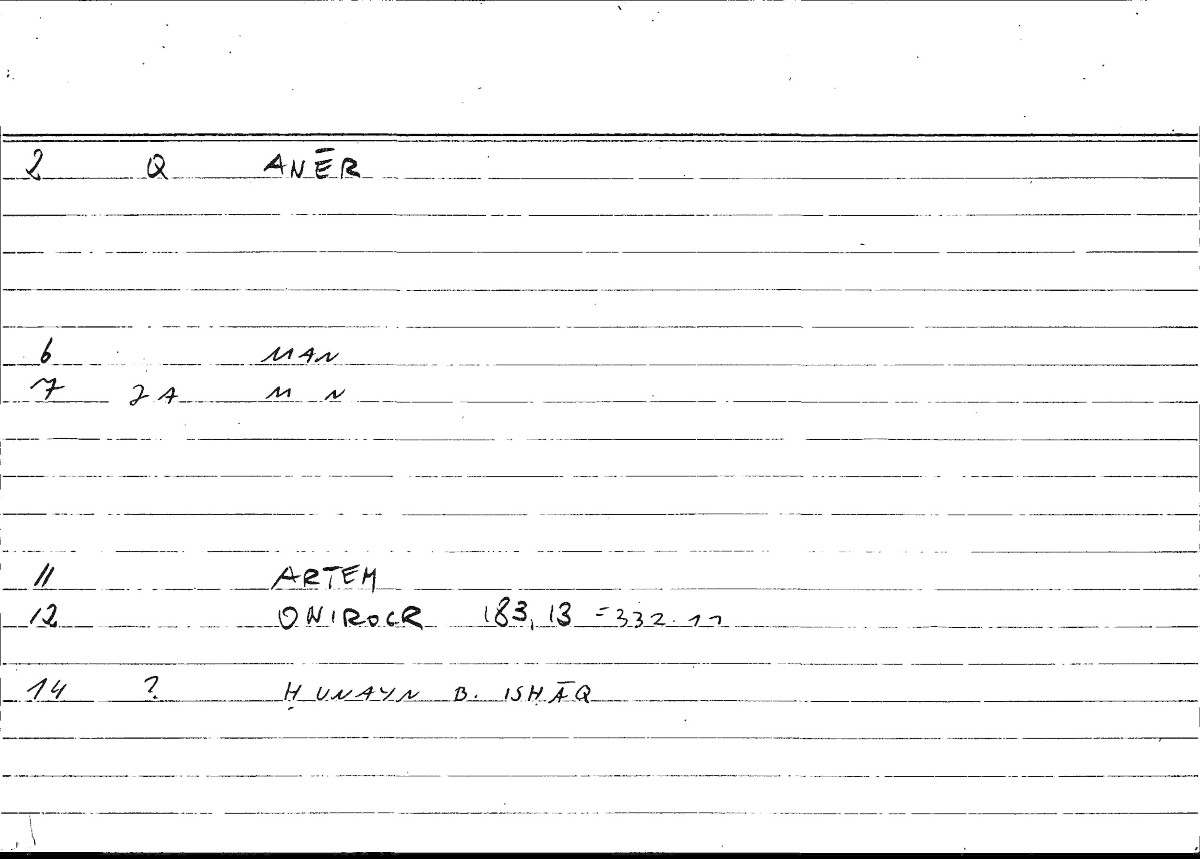 2 Q ANĒR
6 MAN
7 2A M N
11 ARTEM
12 ONIROCR 183,13 = 332.11
14 ? ḤUNAYN B. ISḤĀQ